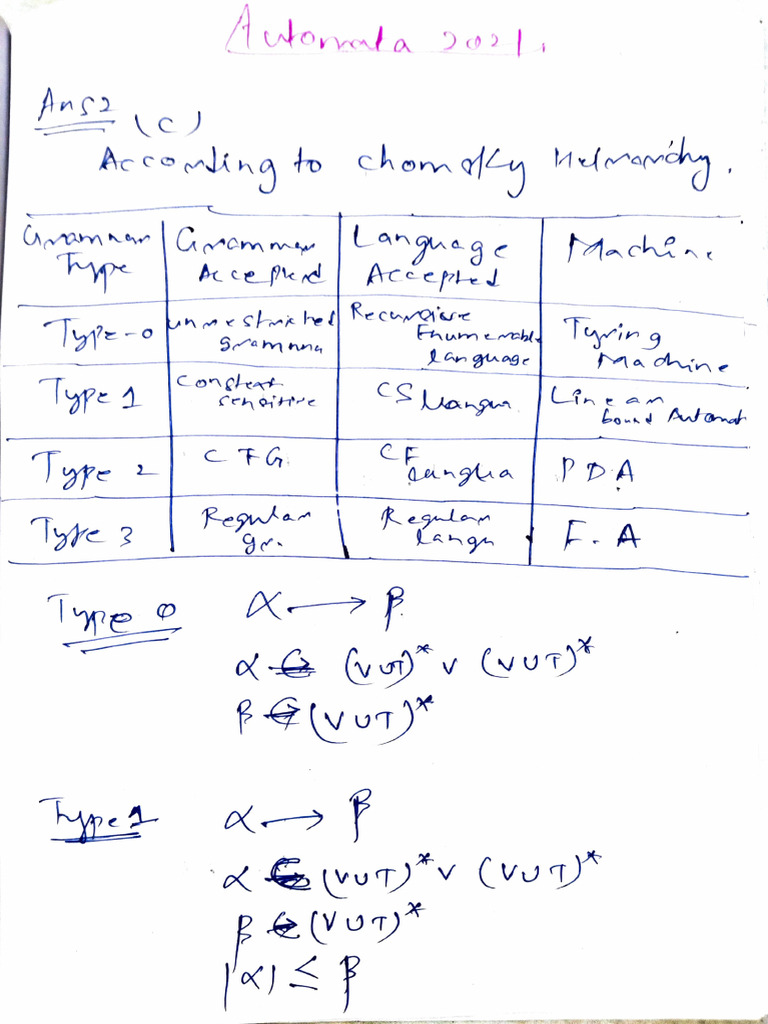 Automata 2021.
Ans2 (c)
According to chomsky Heirarchy.
Grammar Type | Grammar Accepted | Language Accepted | Machine
Type-0 | unrestricted gramma | Recursive Enumerable language | Tyring Machine
Type 1 | Context sensitive | CS langua | Linear bound Automat
Type 2 | CFG | CF langua | PDA
Type 3 | Regular gr. | Regular langu | F.A
Type 0 α → β
α ∈ (V∪T)* V (V∪T)*
β ∈ (V∪T)*
Type 1 α → β
α ∈ (V∪T)* V (V∪T)*
β ∈ (V∪T)*
|α| ≤ β